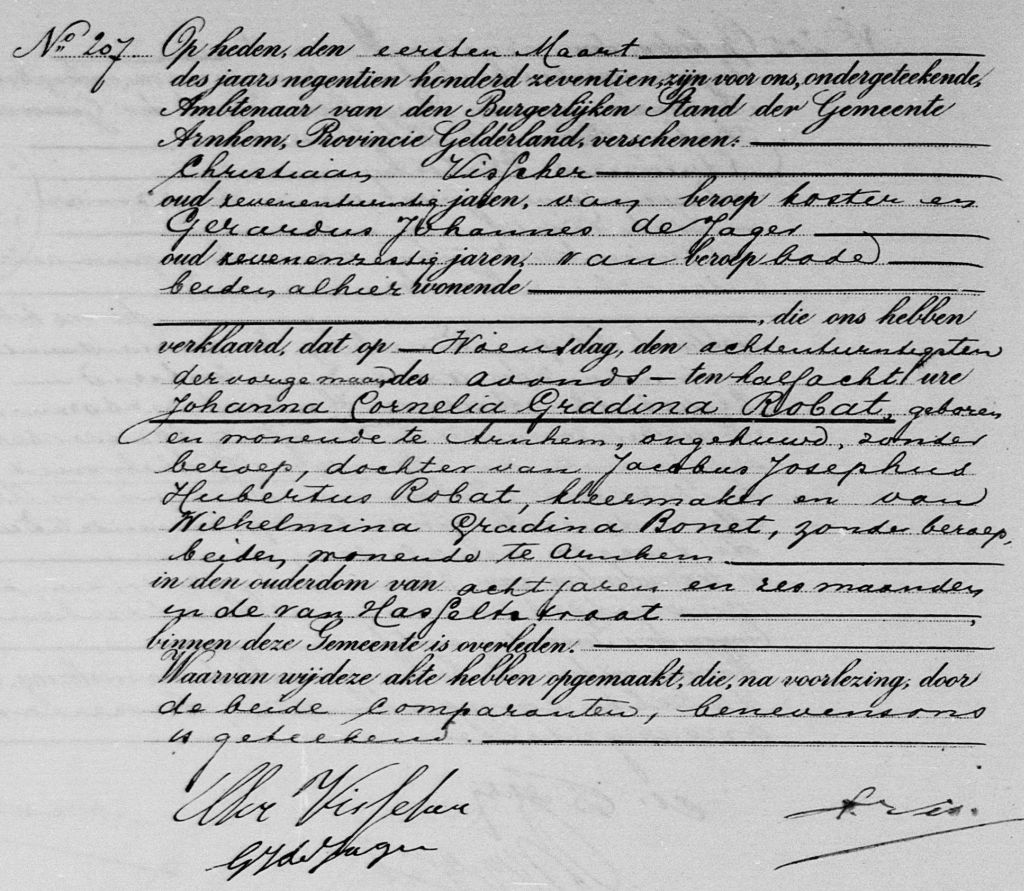 No 207. Op heden, den eersten Maart
des jaars negentien honderd zeventien, zijn voor ons, ondergeteekende,
Ambtenaar van den Burgerlijken Stand der Gemeente
Arnhem, Provincie Gelderland, verschenen:
Christiaan Visscher
oud zevenentwintig jaren, van beroep koster en
Gerardus Johannes de Jager
oud zevenenzestig jaren, van beroep bode
beiden alhier wonende
, die ons hebben
verklaard, dat op Woensdag, den achtentwintigsten
der vorige maand des avonds ten half acht ure
Johanna Cornelia Gradina Robat, geboren
en wonende te Arnhem, ongehuwd, zonder
beroep, dochter van Jacobus Josephus
Hubertus Robat, kleermaker en van
Wilhelmina Gradina Bonet, zonder beroep,
beiden wonende te Arnhem
in den ouderdom van acht jaren en zes maanden
in de van Hasseltstraat
binnen deze Gemeente is overleden.
Waarvan wij deze akte hebben opgemaakt, die, na voorlezing, door
de beide comparanten, benevens ons
is geteekend.
Chr Visscher
GJ de Jager